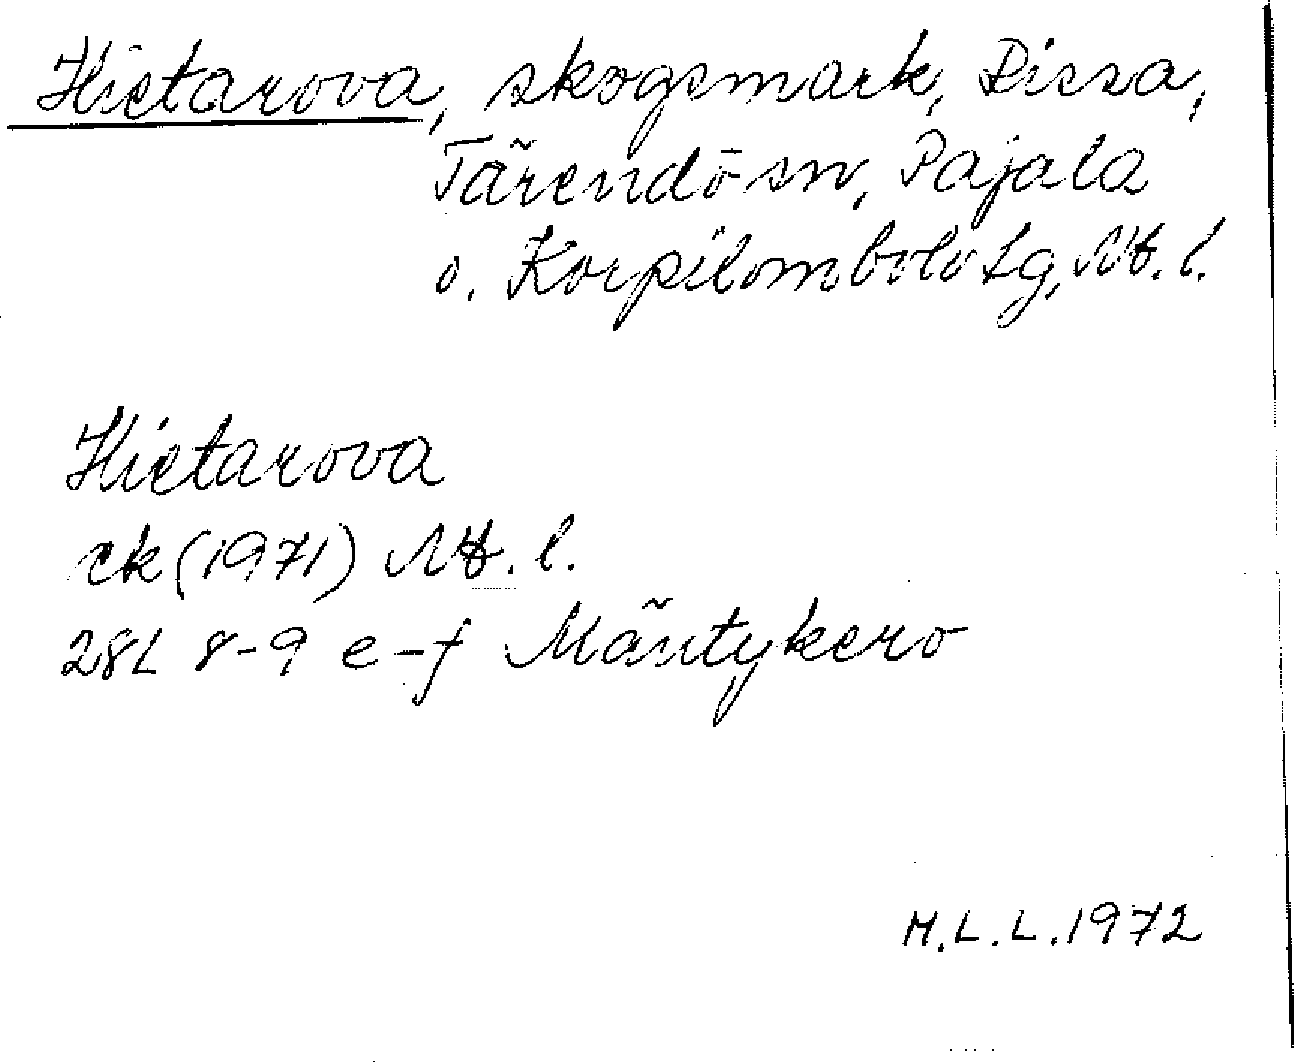 Hietarova, skogsmark, Pissa,
Tärendö sn, Pajala
o. Korpilombolo tg, Nb. l.
Hietarova
ek (1971) Nb. l.
28L 8-9 e-f Mäntykero
M.L.L. 1972